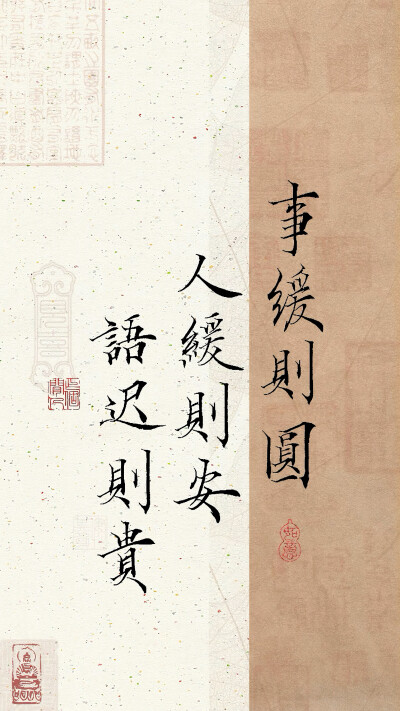 事緩則圓
人緩則安
語迟則貴